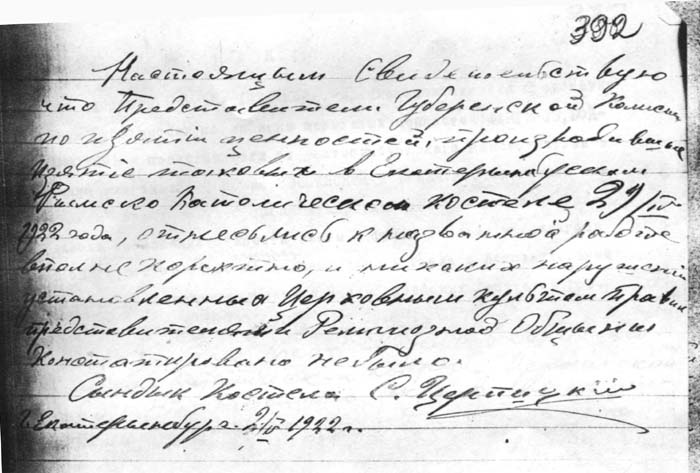 392
Настоящим Свидетельствую
что Представители Губернской Комисии
по изятию ценностей, производившие
изятие таковых в Екатеринбургском
Римско Католическом костеле 29/IV
1922 года, отнеслись к названной работе
вполне коректно, и никаких нарушений
установленных Церковным культом правил
представителями Религиозной Общины
Констатировано небыло.
Сындык Костела С.
г. Екатеринбург. 1922 г.